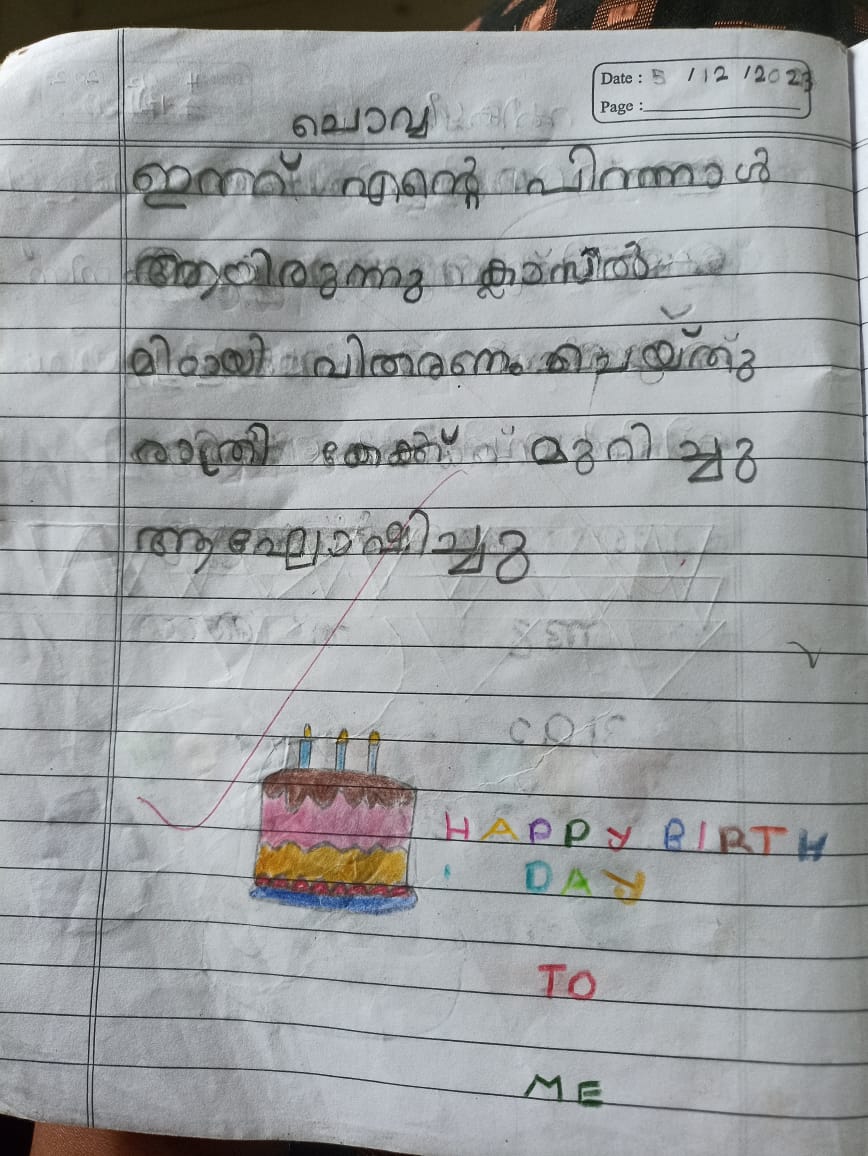 Date : 5 / 12 / 2023
Page :
ചൊവ്വ
ഇന്ന് എന്റെ പിറന്നാൾ
ആയിരുന്നു ക്ലാസിൽ
മിഠായി വിതരണം ചെയ്തു
രാത്രി കേക്ക് മുറിച്ചു
ആഘോഷിച്ചു
HAPPY BIRTH
DAY
TO
ME